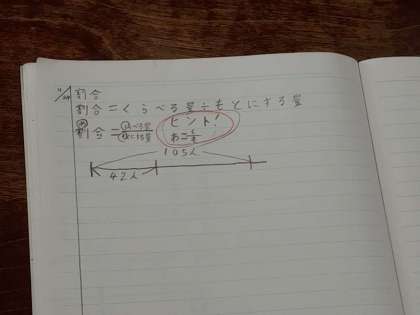 割合
割合=くらべる量÷もとにする量
割合=くらべる量/もとにする量
ヒント!
わ=く/も
105人
42人